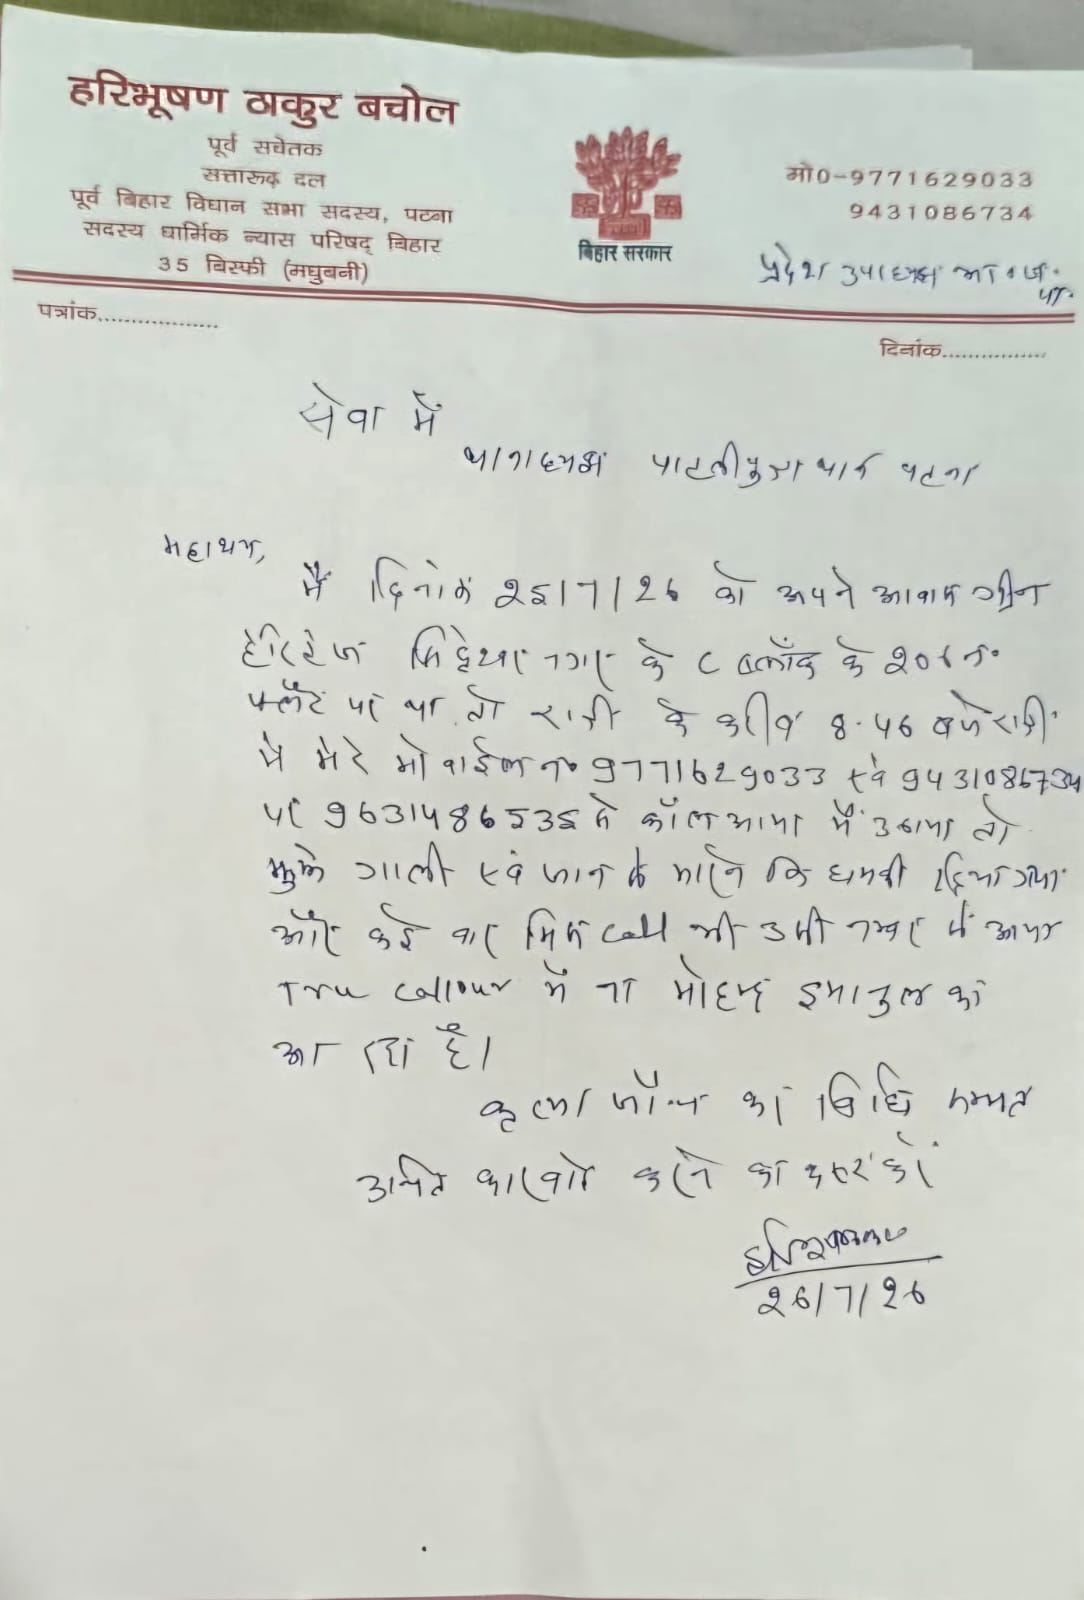 हरिभूषण ठाकुर बचोल
पूर्व सचेतक
सत्तारूढ़ दल
पूर्व बिहार विधान सभा सदस्य, पटना
सदस्य धार्मिक न्यास परिषद् बिहार
35 बिस्फी (मधुबनी)
बिहार सरकार
मो0-9771629033
9431086734
प्रदेश उपाध्यक्ष भा॰ज॰
पा॰
पत्रांक..................
दिनांक................
सेवा में
थानाध्यक्ष पाटलीपुत्रा थाना पटना
महाशय,
मैं दिनांक 25/7/26 को अपने आवास ग्रीन
हेरिटेज सिद्देश्वर नगर के C ब्लॉक के 206 नं॰
फ्लैट पर था तो रात्री के करीब 8.46 बजे रात्री
में मेरे मोबाईल न॰ 9771629033 एवं 9431086734
पर 9631486535 से कॉल आया मैं उठाया तो
मुझे गाली एवं जान से मारने कि धमकी दिया गया
और कई बार मिस call भी उसी नम्बर से आया
Tru callour में ना मोहम्द इमामुल का
आ रहा है।
कृप्या जाँच कर विधि सम्मत
उचित कारवाई करने का कष्ट करें
26/7/26